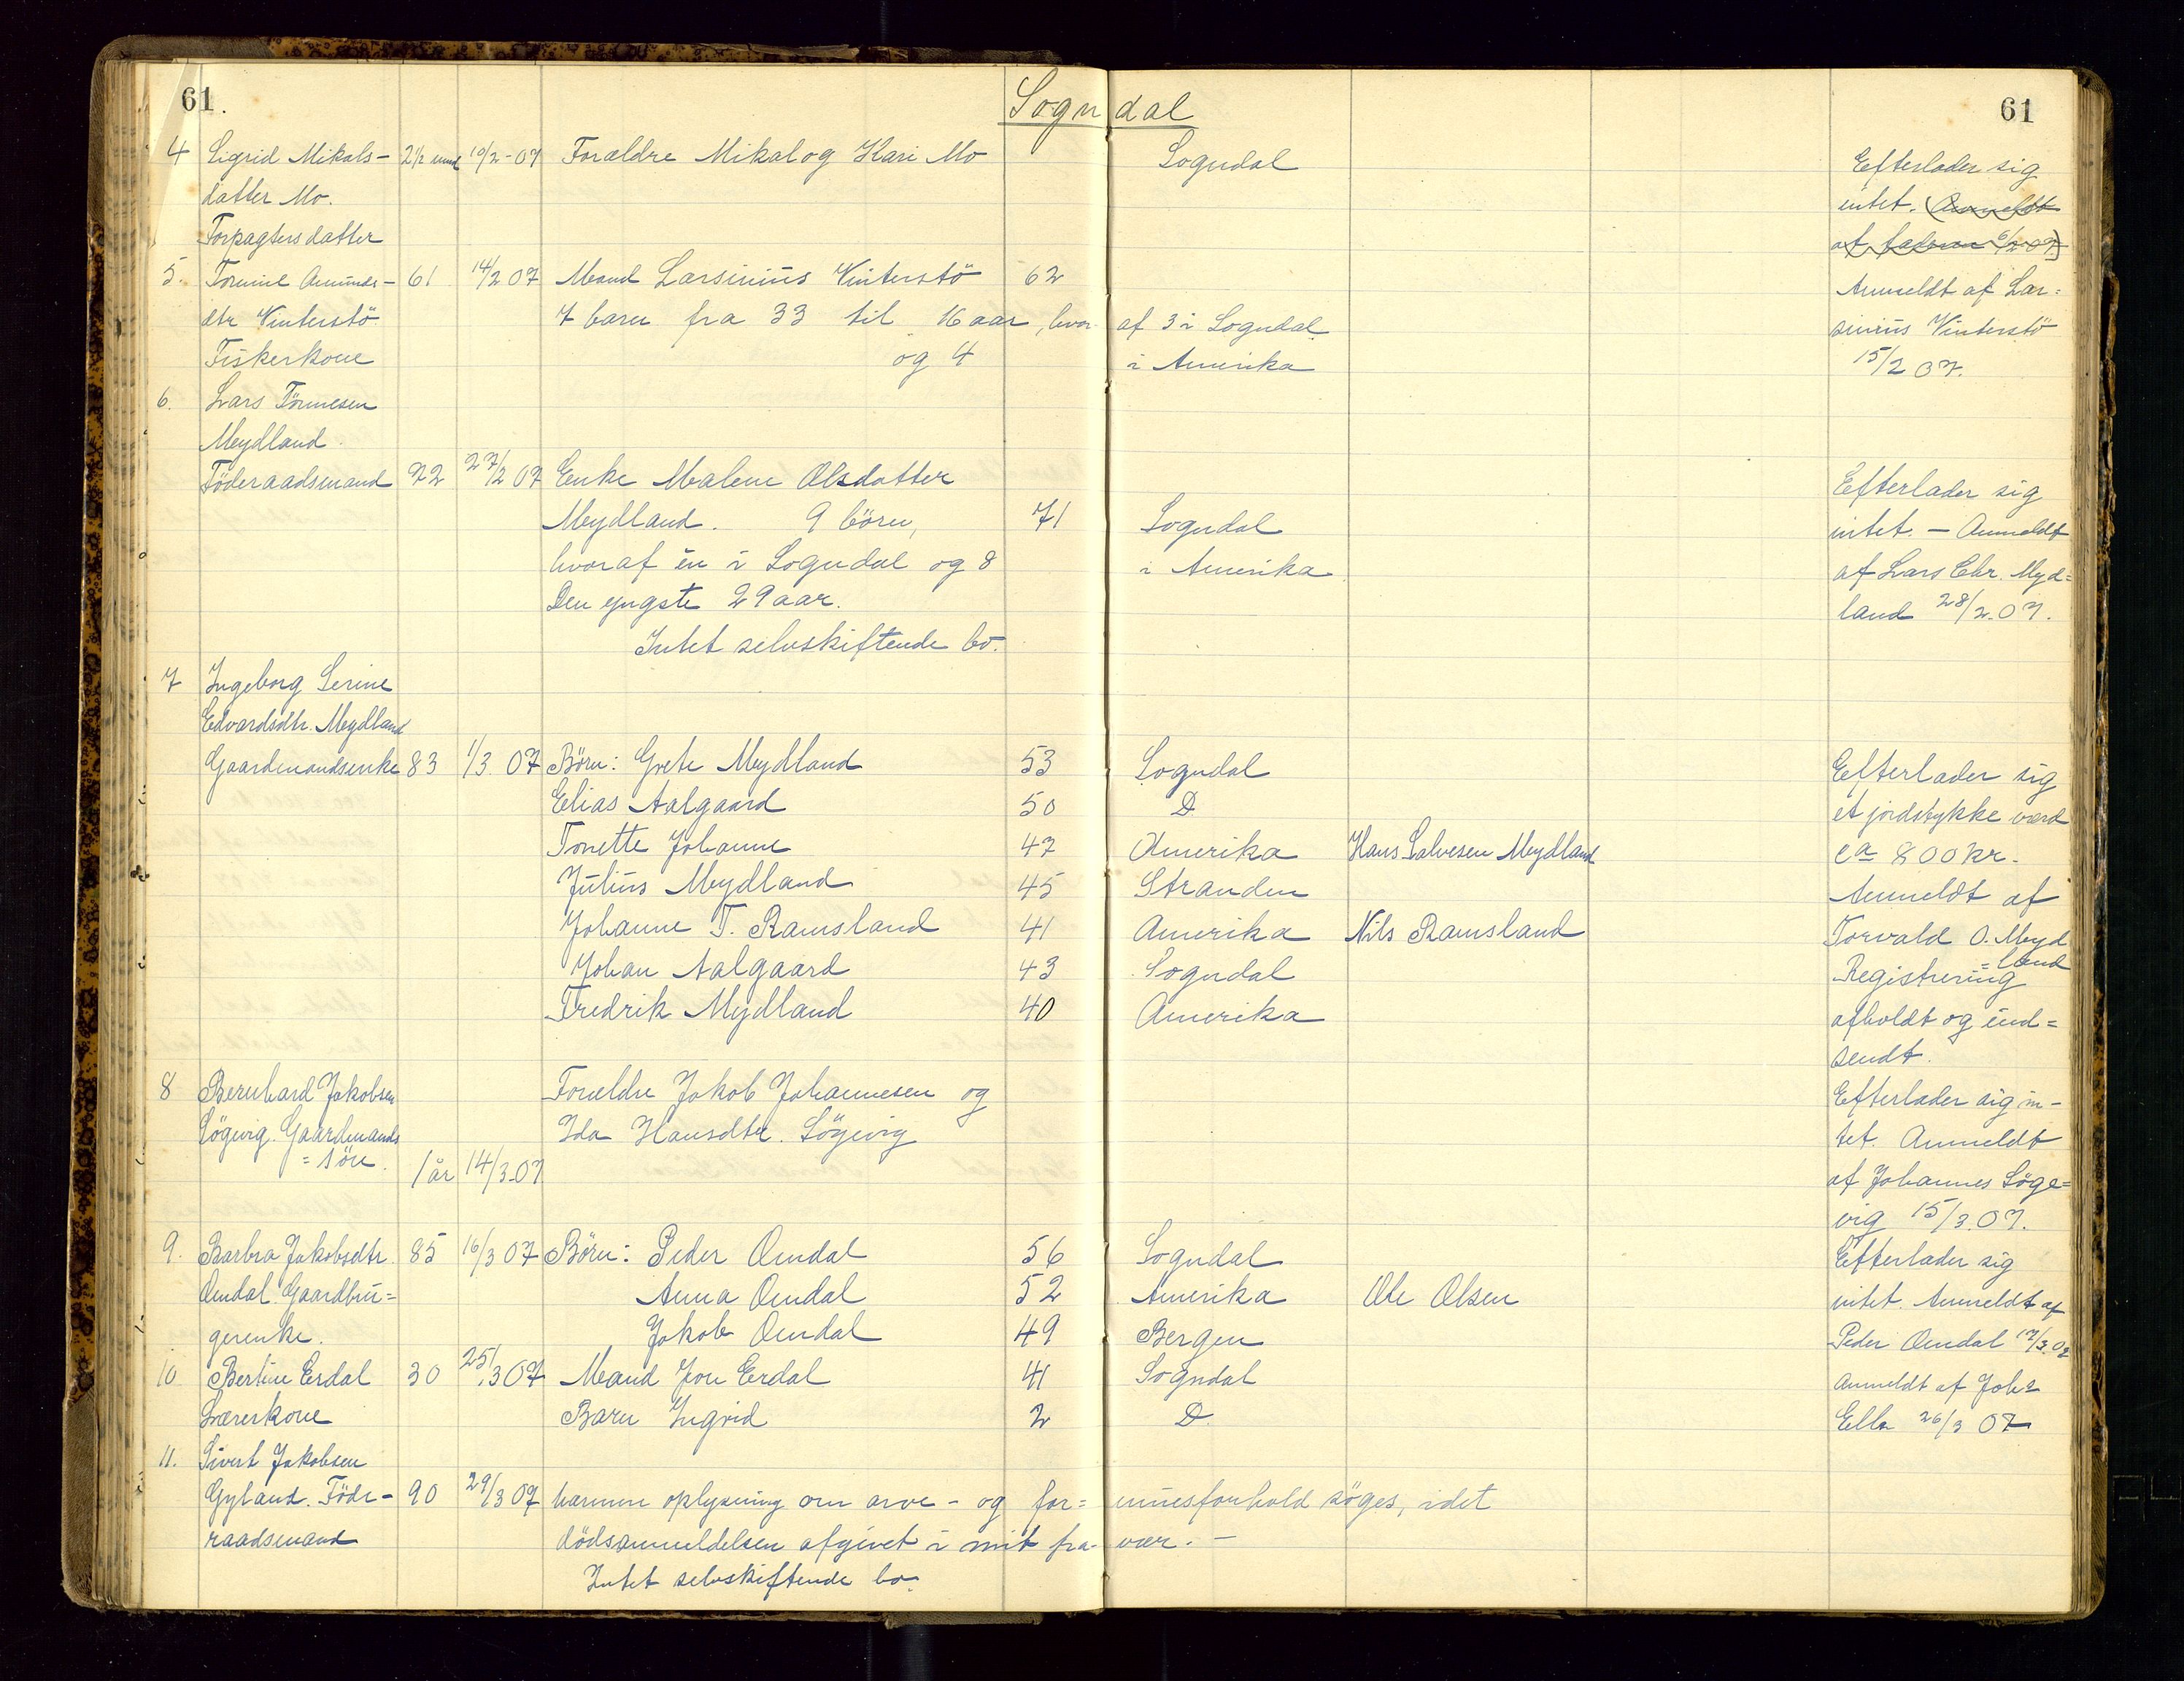 61. Sogndal 61
4 Sigrid Mikals- 2½ mnd 10/2-07 Forældre Mikal og Kari Mo Sogndal Efterlader sig
datter Mo. intet. (Anmeldt
Forpagters datter af faderen 6/2 07)
5. Tomine Amunds- 61 14/2 07 Mand Larsinius Vinterstö 62 Anmeldt af Lar=
dtr Vinterstö 7 barn fra 33 til 16 aar, hvor af 3 i Sogndal sinius Vinterstö
Fiskerkone og 4 i Amerika 15/2 07.
6. Lars Tönnesen
Mydland.
Föderaadsmand 72 27/2 07 Enke Malene Olsdatter Efterlader sig
Mydland. 9 börn, 71 Sogndal intet. - Anmeldt
hvoraf én i Sogndal og 8 i Amerika af Lars Chr. Myd=
Den yngste 29 aar. land 28/2.07.
Intet selvskiftende bo.
7 Ingeborg Serine
Edvardsdtr. Mydland
Gaardmandsenke 83 1/3 07 Börn: Grete Mydland 53 Sogndal Efterlader sig
Elias Aalgaard 50 D et jordstykke værd
Tonette Johanne 47 Amerika Hans Salvesen Mydland ca 800 kr.
Julius Mydland 45 Stranden Anmeldt af
Johanne T. Ramsland 41 Amerika Nils Ramsland Torvald O. Myd
=land
Johan Aalgaard 43 Sogndal Registrering
Fredrik Mydland 40 Amerika afholdt og ind=
sendt.
8 Bernhard Jakobsen Forældre Jakob Johannesen og Efterlader sig in-
Lögevig. Gaardmands Ida Hansdtr. Lögevig tet. Anmeldt
=sön. 1 år 14/3.07 af Johannes Löge=
vig 15/3.07.
9. Barbra Jakobsdtr. 85 16/3 07 Börn: Peder Omdal 56 Sogndal Efterlader sig
Omdal. Gaardbru= Anna Omdal 52 Amerika Ole Olsen intet. Anmeldt af
gerenke. Jakob Omdal 49 Bergen Peder Omdal 17/3.07
10 Bertine Eerdal 30 25/3 07 Mand Jon Eerdal 41 Sogndal Anmeldt af Johs
Lærerkone Barn Ingrid 2 D. 26/3 07
11. Sivert Jakobsen
Gyland. Föde- 90 29/3 07 nærmere oplysning om arve- og for= muesforhold söges, idet
raadsmand dödsanmeldelsen afgivet i mit fra- vær. -
Intet selvskiftende bo.